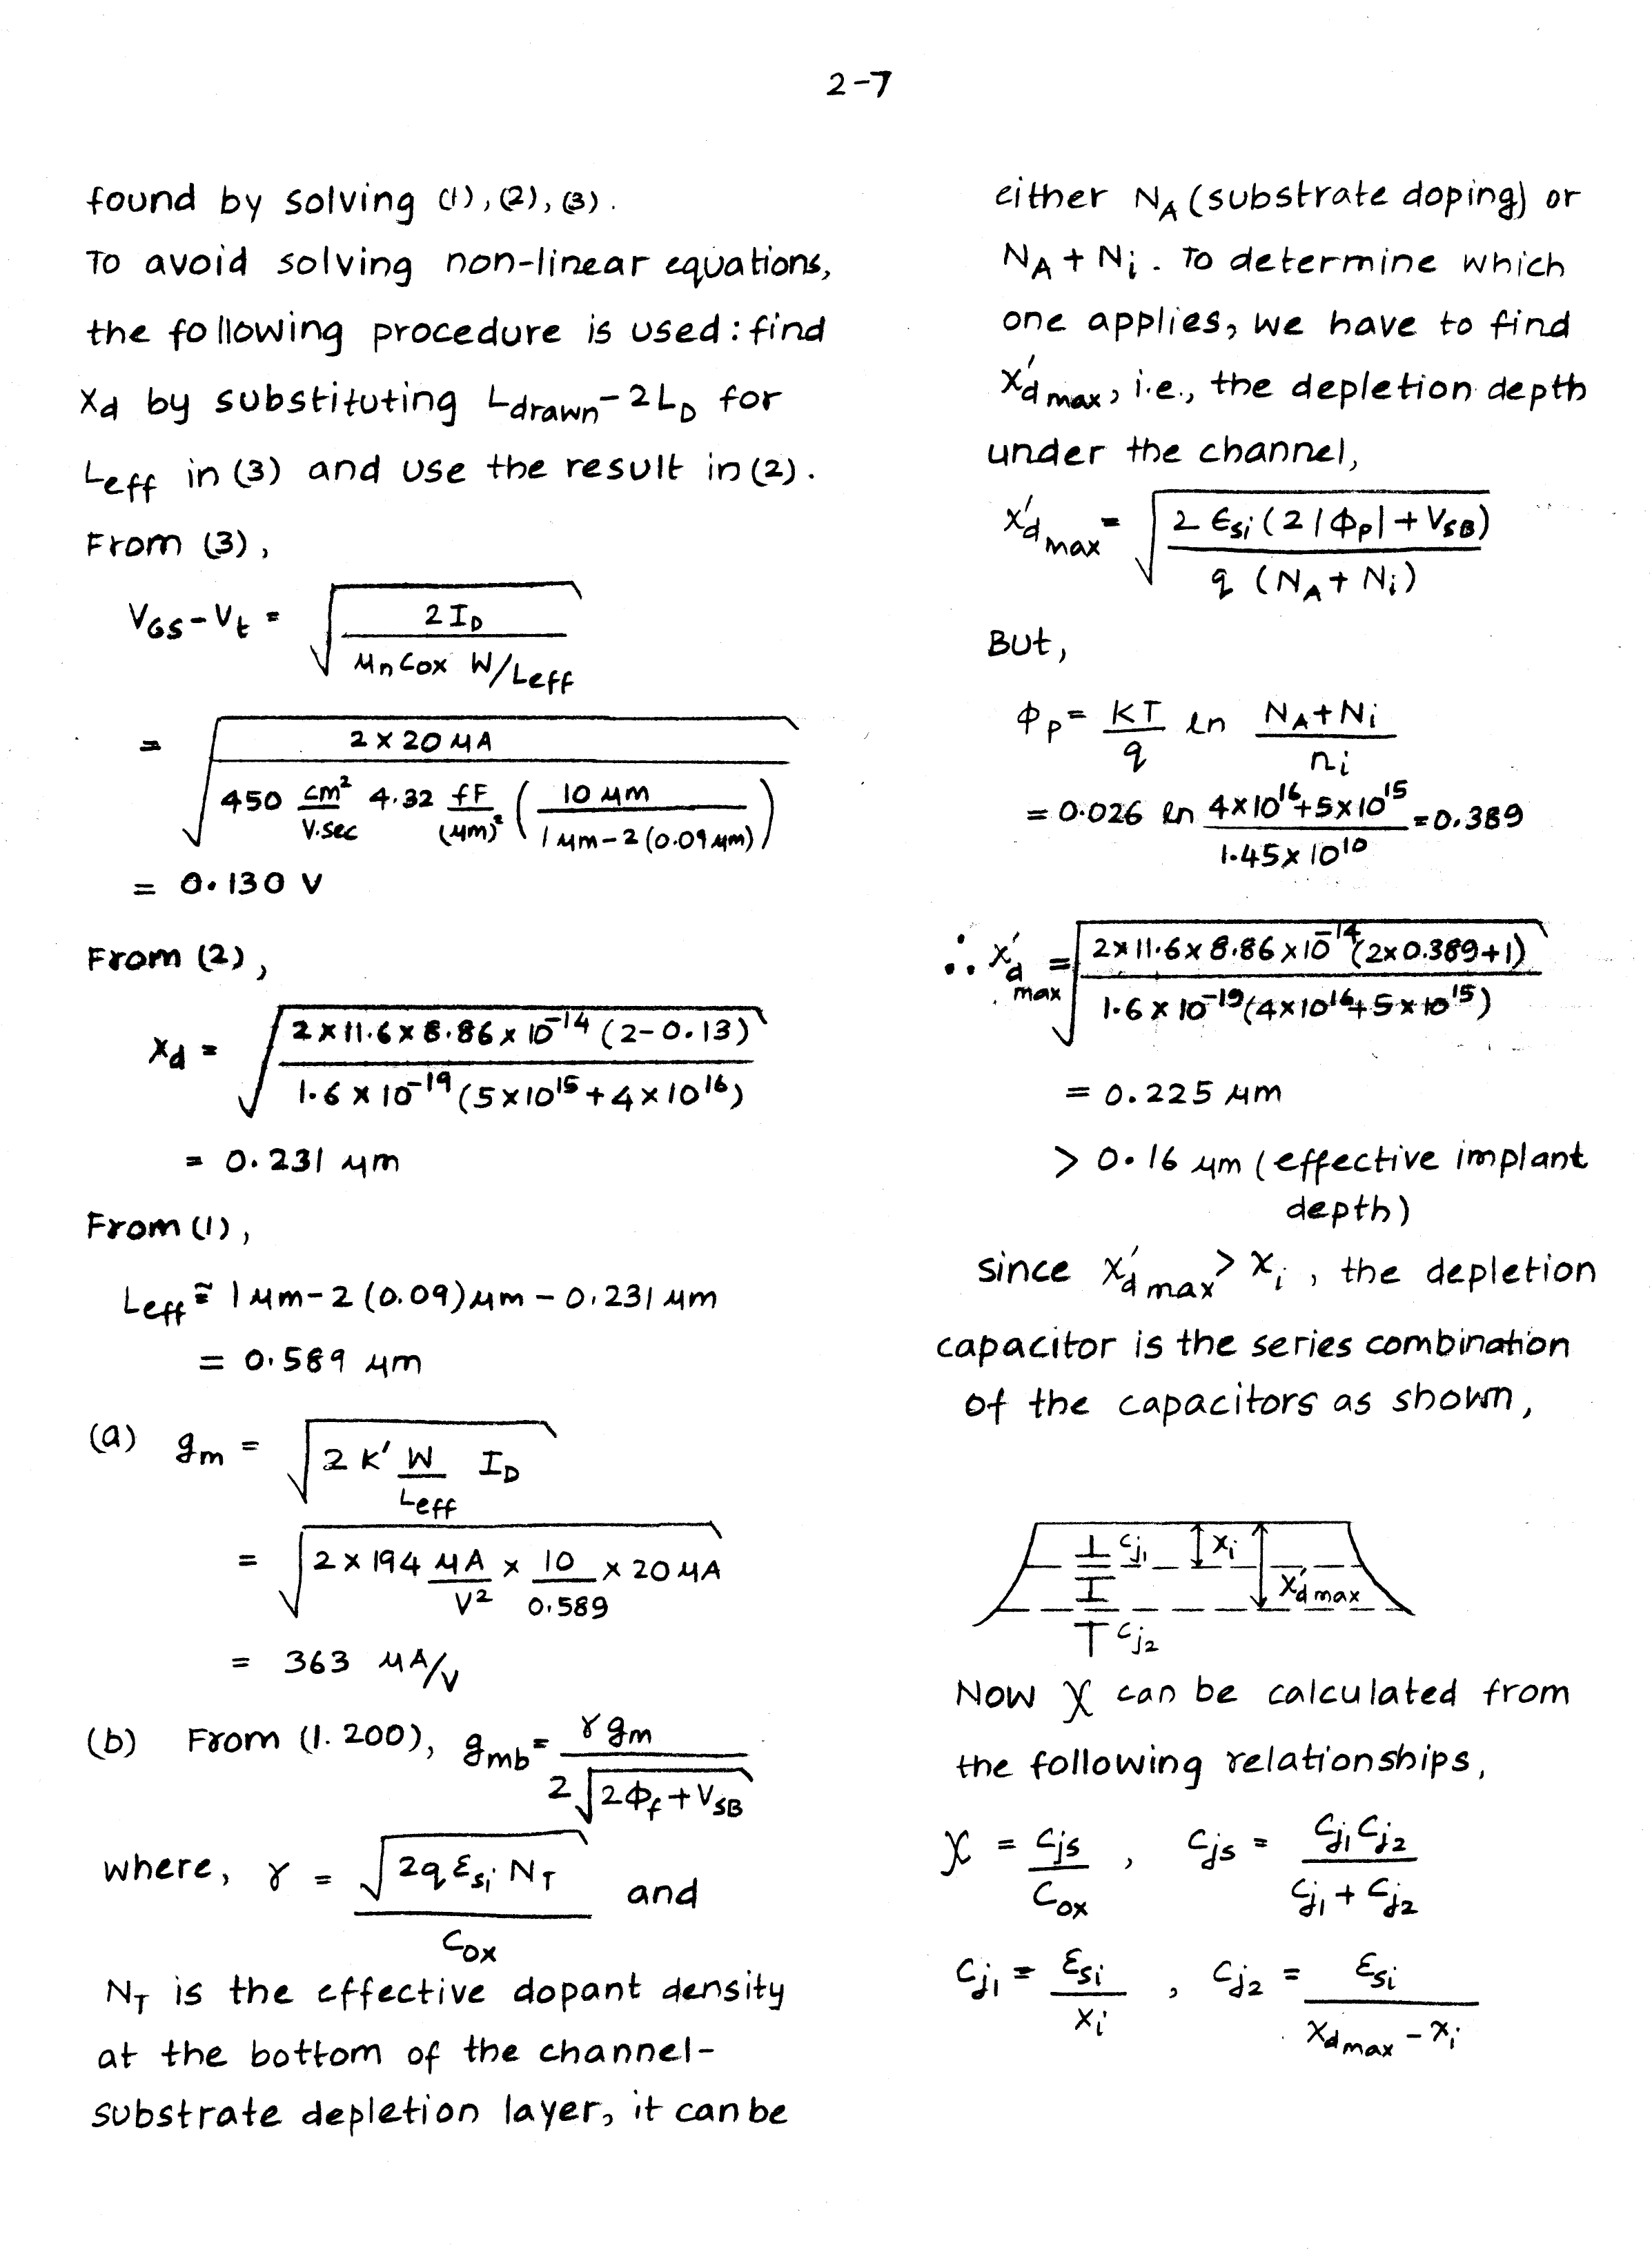 2-7
found by solving (1), (2), (3).
To avoid solving non-linear equations,
the following procedure is used: find
Xd by substituting Ldrawn - 2LD for
Leff in (3) and use the result in (2).
From (3),
VGS - Vt = √(2 ID / (μn Cox W/Leff))
= √(2 × 20 μA / (450 cm²/V.sec 4.32 fF/(μm)² (10 μm / (1 μm - 2(0.09 μm)))))
= 0.130 V
From (2),
Xd = √(2 × 11.6 × 8.86 × 10^-14 (2 - 0.13) / (1.6 × 10^-19 (5 × 10^15 + 4 × 10^16)))
= 0.231 μm
From (1),
Leff ≅ 1 μm - 2 (0.09) μm - 0.231 μm
= 0.589 μm
(a) gm = √(2 K' W/Leff ID)
= √(2 × 194 μA/V² × 10/0.589 × 20 μA)
= 363 μA/V
(b) From (1.200), gmb = γ gm / (2 √(2Φf + VSB))
where, γ = √(2q εsi NT) / Cox and
NT is the effective dopant density
at the bottom of the channel-
substrate depletion layer, it can be
either NA (substrate doping) or
NA + Ni. To determine which
one applies, we have to find
X'd max, i.e., the depletion depth
under the channel,
X'd max = √(2 ϵsi (2|Φp| + VSB) / (q (NA + Ni)))
But,
Φp = KT/q ln (NA + Ni)/ni
= 0.026 ln (4×10^16 + 5×10^15)/(1.45×10^10) = 0.389
∴ X'd max = √(2×11.6×8.86×10^-14 (2×0.389+1) / (1.6×10^-19 (4×10^16 + 5×10^15)))
= 0.225 μm
> 0.16 μm (effective implant
depth)
since X'd max > Xi, the depletion
capacitor is the series combination
of the capacitors as shown,
Cj1 Xi
X'd max
Cj2
Now χ can be calculated from
the following relationships,
χ = Cjs/Cox , Cjs = Cj1 Cj2 / (Cj1 + Cj2)
Cj1 = εsi/Xi , Cj2 = εsi / (Xd max - Xi)